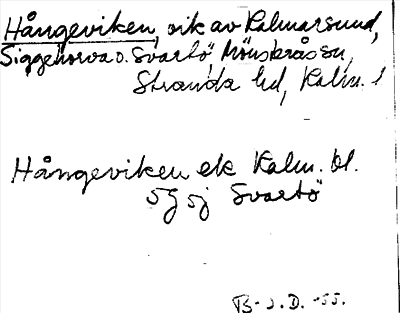 Hångeviken, vik av Kalmarsund,
Siggehorva o. Svartö, Mönsterås sn,
Stranda hd, Kalm. l
Hångeviken ek Kalm. bl.
5g 5j Svartö
B-J.D. -55.